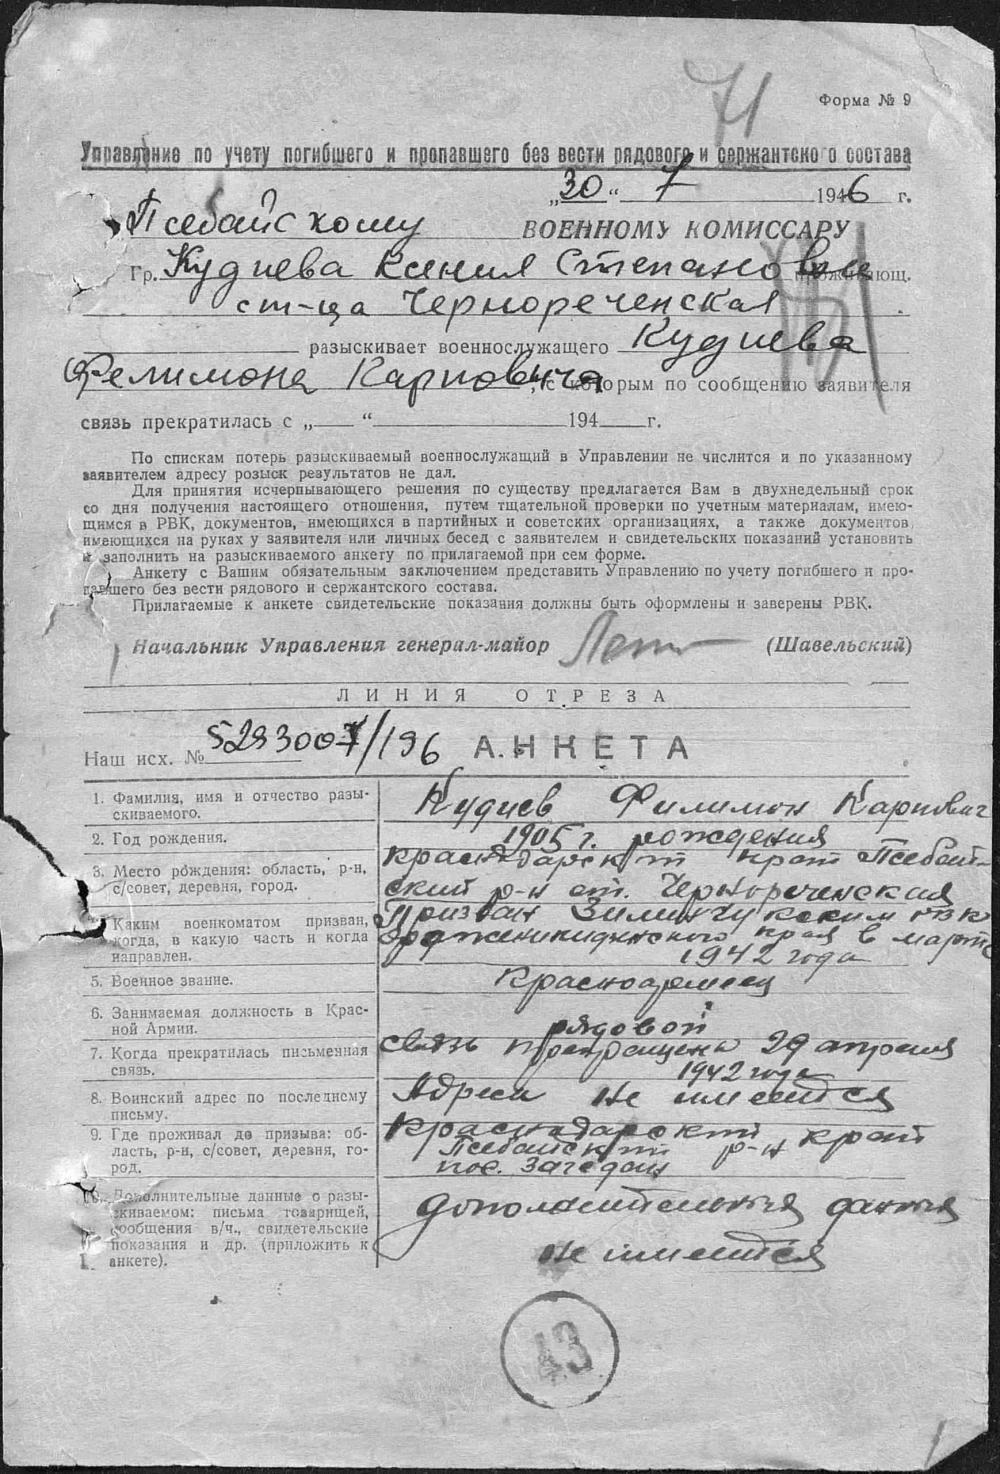 71
Форма № 9
Управление по учету погибшего и пропавшего без вести рядового и сержантского состава
„30“ 7 1946 г.
Псебайскому ВОЕННОМУ КОМИССАРУ
Гр. Кудиева Ксения Степановна проживающ.
ст-ца Чернореченская
разыскивает военнослужащего Кудиева
Фелимона Карповича, с которым по сообщению заявителя
связь прекратилась с „ “ 194 г.
По спискам потерь разыскиваемый военнослужащий в Управлении не числится и по указанному
заявителем адресу розыск результатов не дал.
Для принятия исчерпывающего решения по существу предлагается Вам в двухнедельный срок
со дня получения настоящего отношения, путем тщательной проверки по учетным материалам, имею-
щимся в РВК, документов, имеющихся в партийных и советских организациях, а также документов,
имеющихся на руках у заявителя или личных бесед с заявителем и свидетельских показаний установить
и заполнить на разыскиваемого анкету по прилагаемой при сем форме.
Анкету с Вашим обязательным заключением представить Управлению по учету погибшего и про-
павшего без вести рядового и сержантского состава.
Прилагаемые к анкете свидетельские показания должны быть оформлены и заверены РВК.
Начальник Управления генерал-майор (Шавельский)
ЛИНИЯ ОТРЕЗА
Наш исх. № /196 АНКЕТА
1. Фамилия, имя и отчество разы-
скиваемого.
Кудиев Филимон Карпович
2. Год рождения.
1905 г. рождения
3. Место рождения: область, р-н,
с/совет, деревня, город.
Краснодарский край Псебай-
ский р-н ст. Чернореченская
Каким военкоматом призван,
когда, в какую часть и когда
направлен.
Призван Зиленчукским РВК
Орджоникидзенского края в марте
1942 года
5. Военное звание.
Красноармеец
6. Занимаемая должность в Крас-
ной Армии.
рядовой
7. Когда прекратилась письменная
связь.
связь прекращена 29 апреля
1942 года
8. Воинский адрес по последнему
письму.
Адреса не имеится
9. Где проживал до призыва: об-
ласть, р-н, с/совет, деревня, го-
род.
Краснодарский край
Псебайский р-н
пос. Загедан
10. Дополнительные данные о разы-
скиваемом: письма товарищей,
сообщения в/ч., свидетельские
показания и др. (приложить к
анкете).
дополнительных даных
не имеится
43